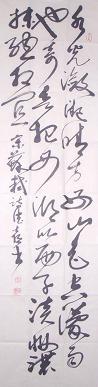 水光瀲灩晴方好山色空濛雨
亦奇若把西湖比西子淡妝濃
抹總相宜 蘇軾詩 書